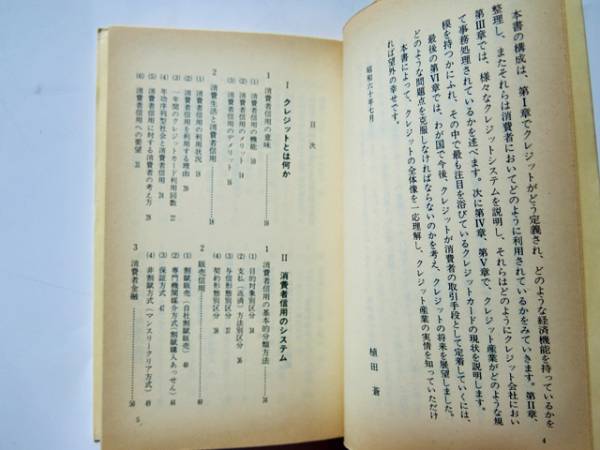 本書の構成は、第Ⅰ章でクレジットがどう定義され、どのような経済機能を持っているかを
整理し、またそれらは消費者においてどのように利用されているかをみていきます。第Ⅱ章、
第Ⅲ章では、様々なクレジットシステムを説明し、それらはどのようにクレジット会社におい
て事務処理されているかを述べます。次に第Ⅳ章、第Ⅴ章で、クレジット産業がどのような規
模を持つかにふれ、その中で最も注目を浴びているクレジットカードの現状を説明します。
最後の第Ⅵ章では、わが国で今後、クレジットが消費者の取引手段として定着していくには、
どのような問題点を克服しなければならないのかを考え、クレジットの将来を展望しました。
本書によって、クレジットの全体像を一応理解し、クレジット産業の実情を知っていただけ
れば望外の幸せです。
昭和六十年七月
植田 蒼
4
目次
Ⅰ クレジットとは何か
1 消費者信用の意味
(1) 消費者信用の機能
(2) 消費者信用のメリット 14
(3) 消費者信用のデメリット
2 消費生活と消費者信用 18
(1) 消費者信用の利用状況 18
(2) 消費者信用を利用する理由 20
(3) 一年間のクレジットカード利用回数 22
(4) 年功序列型社会と消費者信用 24
(5) 消費者信用に対する消費者の考え方
(6) 消費者信用への要望 31
Ⅱ 消費者信用のシステム
1 消費者信用の基本的分類方法
(1) 目的対象別区分
(2) 支払(返済)方法別区分 36
(3) 与信形態別区分
(4) 契約形態別区分
2 販売信用
(1) 割賦販売(自社割賦販売) 40
(2) 専門機関媒介方式(割賦購入あっせん)
(3) 保証方式 47
(4) 非割賦方式(マンスリークリア方式) 49
3 消費者金融 50
5